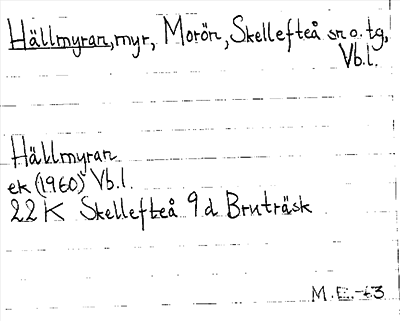 Hällmyran, myr, Morön, Skellefteå sn o. tg,
Vb.l.
Hällmyran
ek (1960) Vb.l.
22 K Skellefteå 9 d Bruträsk
M.E.-73